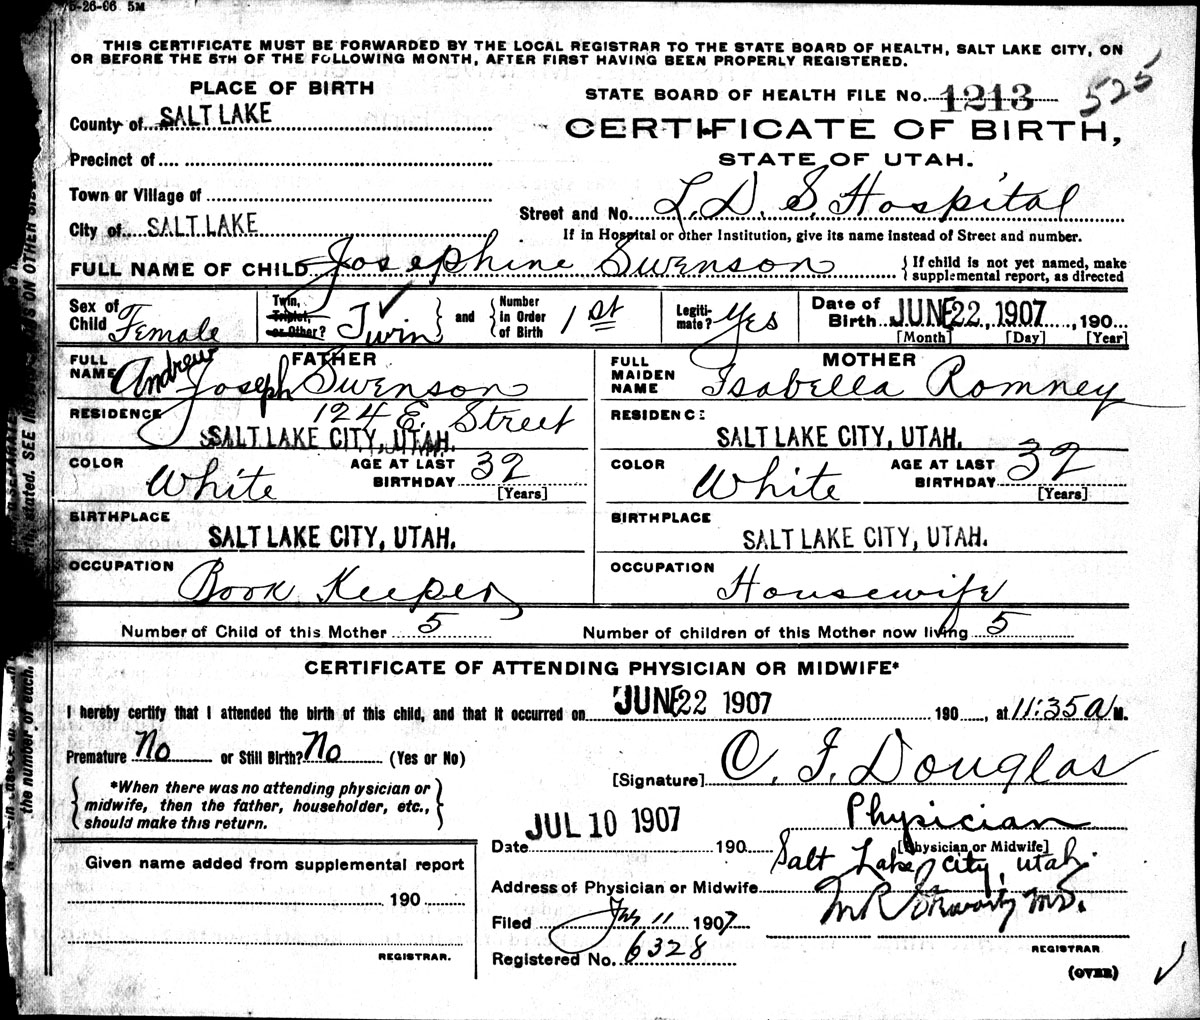 5-26-06 5M
THIS CERTIFICATE MUST BE FORWARDED BY THE LOCAL REGISTRAR TO THE STATE BOARD OF HEALTH, SALT LAKE CITY, ON
OR BEFORE THE 5TH OF THE FOLLOWING MONTH, AFTER FIRST HAVING BEEN PROPERLY REGISTERED.
525
PLACE OF BIRTH
STATE BOARD OF HEALTH FILE No. 1213
County of SALT LAKE
CERTIFICATE OF BIRTH,
Precinct of
STATE OF UTAH.
Town or Village of
Street and No. L. D. S. Hospital
City of SALT LAKE
If in Hospital or other Institution, give its name instead of Street and number.
FULL NAME OF CHILD Josephine Swenson
{ If child is not yet named, make
supplemental report, as directed
Sex of Child Female
Twin, Triplet, or Other? Twin } and { Number in Order of Birth 1st
Legitimate? Yes
Date of Birth JUNE 22, 1907, 190
[Month] [Day] [Year]
FATHER
FULL NAME Andrew Joseph Swenson
RESIDENCE 124 E. Street
SALT LAKE CITY, UTAH.
COLOR White AGE AT LAST BIRTHDAY 32
[Years]
BIRTHPLACE
SALT LAKE CITY, UTAH.
OCCUPATION
Book Keeper
MOTHER
FULL MAIDEN NAME Isabella Romney
RESIDENCE
SALT LAKE CITY, UTAH.
COLOR White AGE AT LAST BIRTHDAY 32
[Years]
BIRTHPLACE
SALT LAKE CITY, UTAH.
OCCUPATION
Housewife
Number of Child of this Mother 5 Number of children of this Mother now living 5
CERTIFICATE OF ATTENDING PHYSICIAN OR MIDWIFE*
I hereby certify that I attended the birth of this child, and that it occurred on JUNE 22 1907 190, at 11:35 a M.
Premature No or Still Birth? No (Yes or No)
[Signature] C. F. Douglas
{ *When there was no attending physician or
midwife, then the father, householder, etc.,
should make this return. }
Physician
[Physician or Midwife]
Date JUL 10 1907 190
Salt Lake City, Utah.
Address of Physician or Midwife
Given name added from supplemental report
190
REGISTRAR.
Filed July 11 1907
M.D.
REGISTRAR
Registered No. 6328
(OVER)
the number, or each
stated. SEE
ON OTHER SIDE